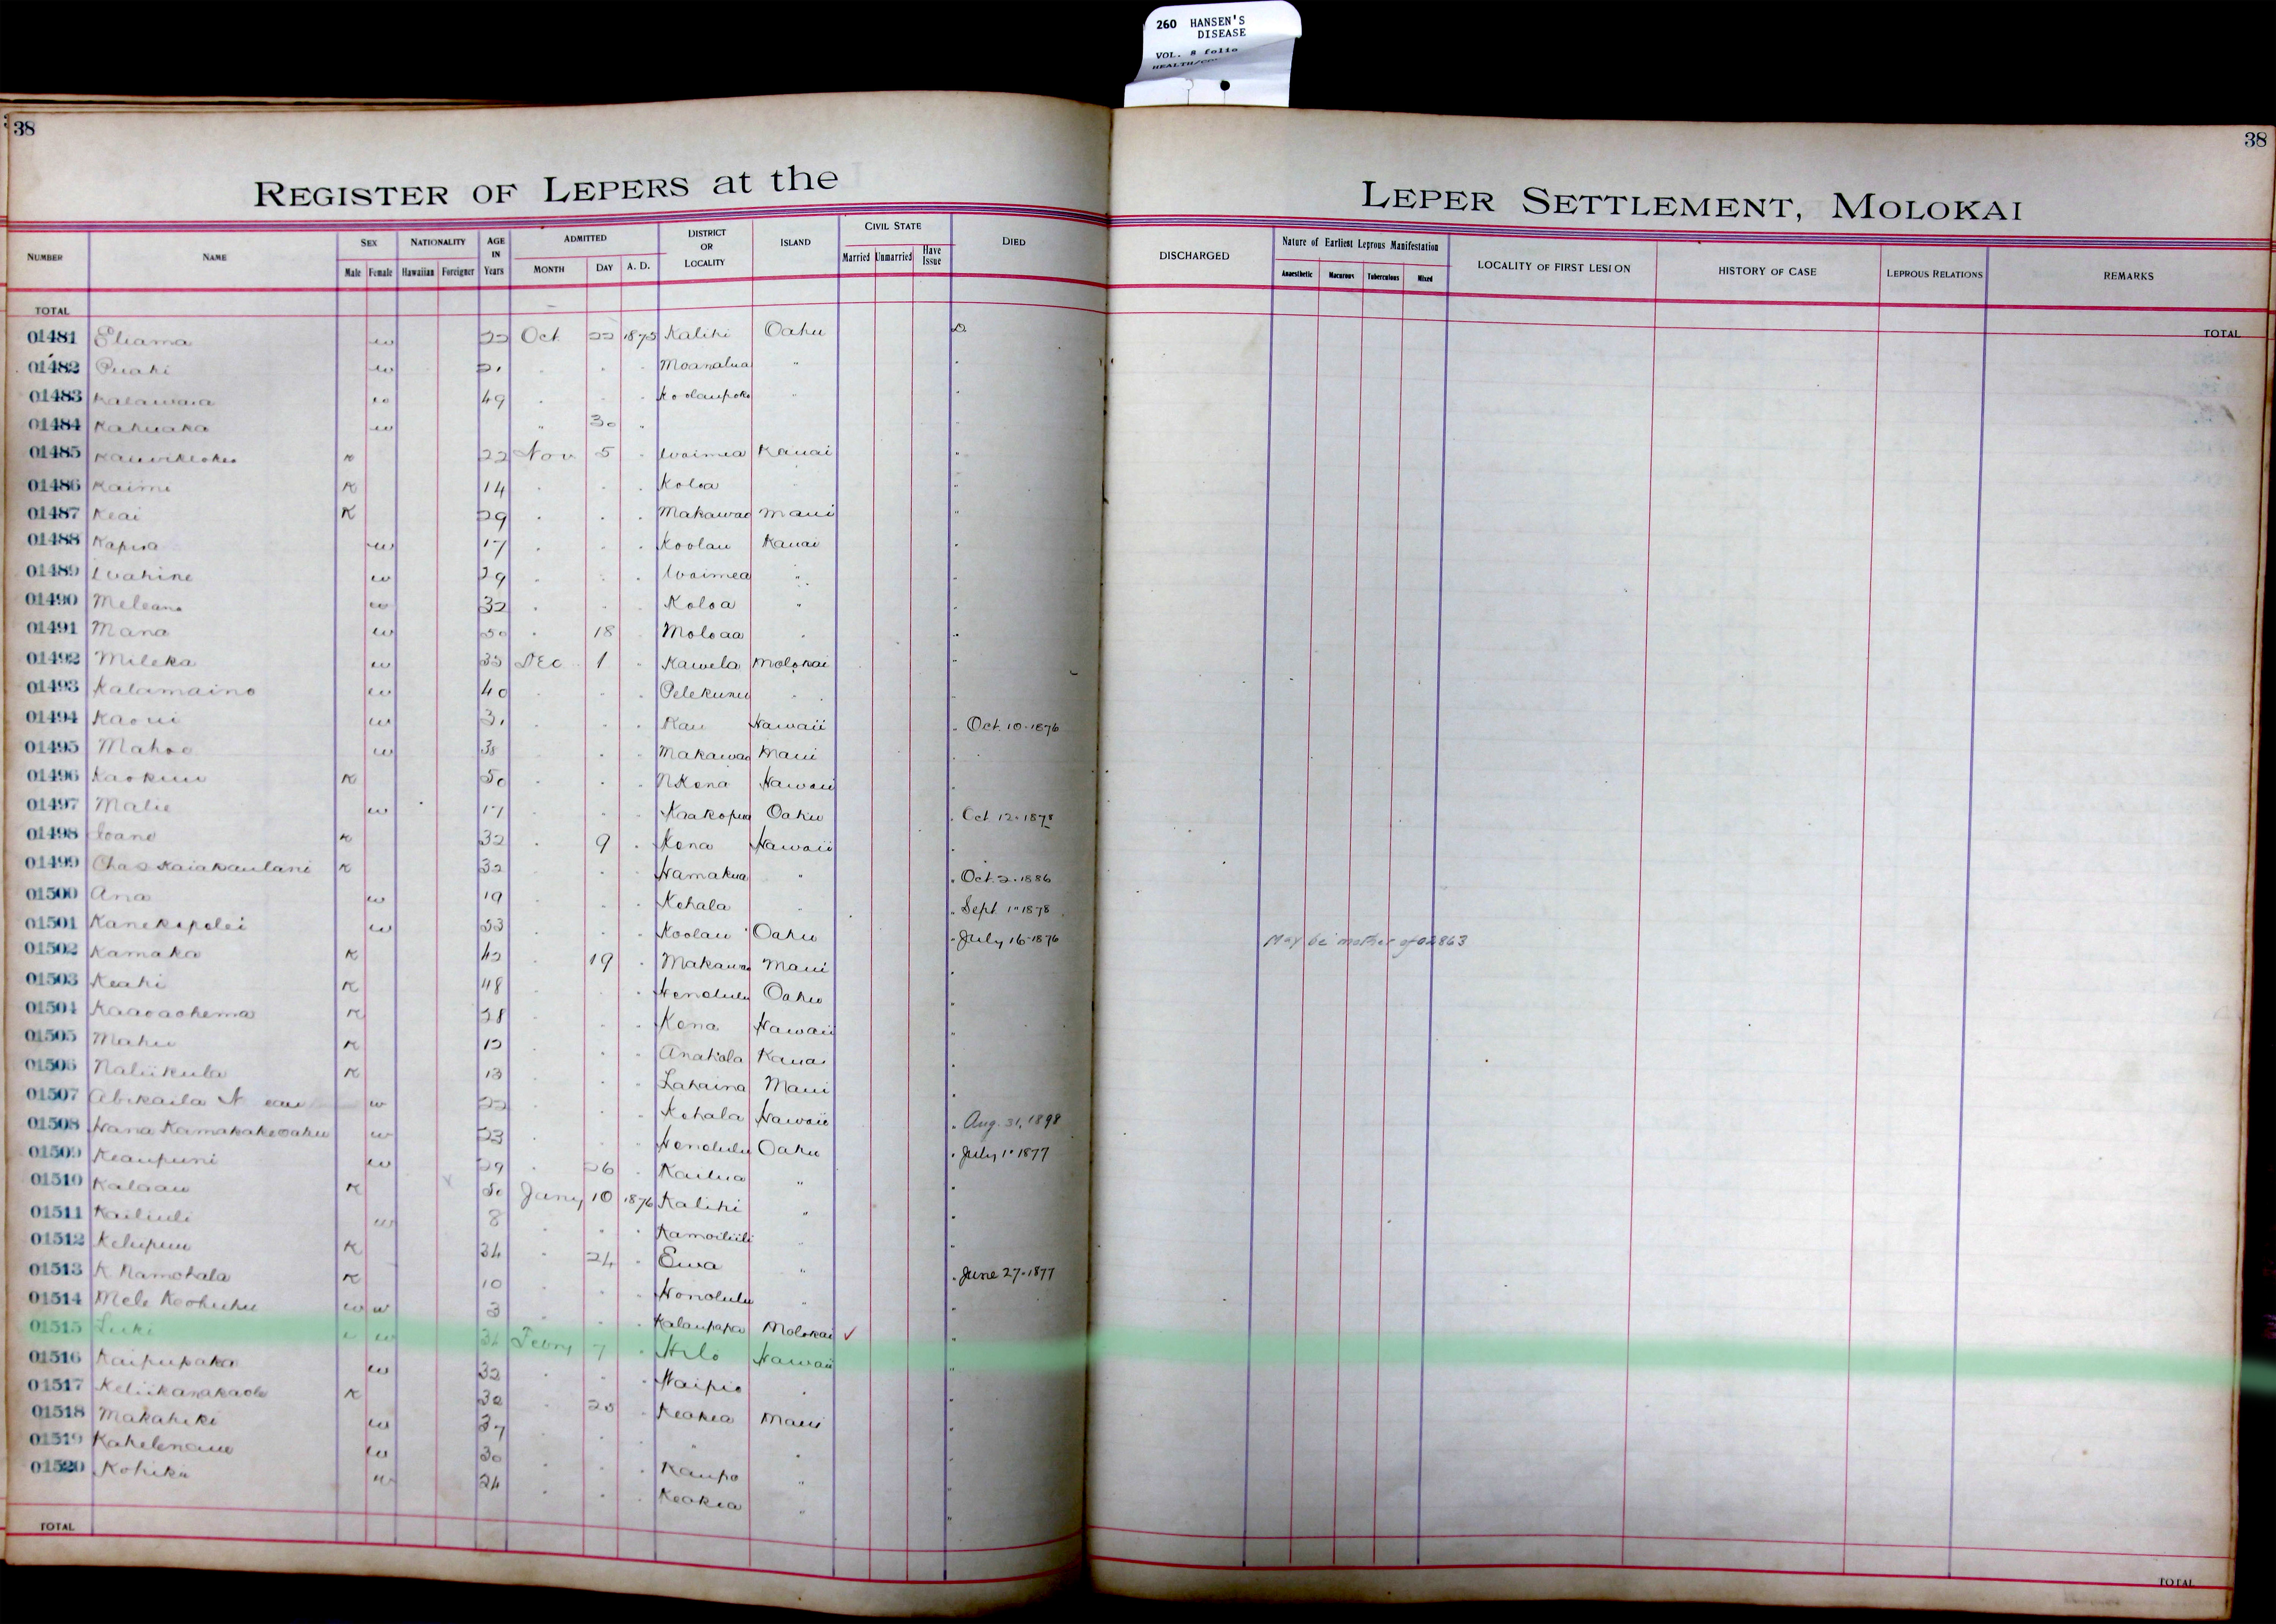 260 HANSEN'S
DISEASE
VOL. 8 folio
38
38
REGISTER OF LEPERS at the LEPER SETTLEMENT, MOLOKAI
NUMBER NAME SEX NATIONALITY AGE IN Years ADMITTED DISTRICT OR LOCALITY ISLAND CIVIL STATE DIED DISCHARGED Nature of Earliest Leprous Manifestation LOCALITY OF FIRST LESION HISTORY OF CASE LEPROUS RELATIONS REMARKS
Male Female Hawaiian Foreigner MONTH DAY A. D. Married Unmarried Have Issue Anaesthetic Macurous Tuberculous Mixed
TOTAL TOTAL
01481 Eliama w 22 Oct 22 1875 Kalihi Oahu D
01482 Puahi w Moanalua "
01483 Kalawaia w 49 Koolaupoko "
01484 Kahuaka w " 30 "
01485 K 22 Nov 5 Waimea Kauai "
01486 Kaimi K 14 Koloa "
01487 Keai K 29 Makawao Maui "
01488 Kapua w 17 Koolau Kauai "
01489 Wahine w 29 Waimea "
01490 Meleana w 32 Koloa "
01491 Mana w 50 18 Moloaa "
01492 Mileka w 35 Dec 1 Kawela Molokai "
01493 Kalamaino w 40 Pelekunu "
01494 Kaoui w 31 Kau Hawaii " Oct. 10-1876
01495 Mahoe w 38 Makawao Maui "
01496 Kaokuu K 50 N Kona Hawaii "
01497 Malie w 17 Kaakopua Oahu " Oct 12-1878
01498 Ioane K 32 9 Kona Hawaii "
01499 Chas Kaiakaulani K 32 Hamakua " " Oct. 2-1886
01500 Ana w 19 Kohala " " Sept 1-1878
01501 Kanekapolei w 53 Koolau Oahu " July 16-1876 May be mother of 02863
01502 Kamaka K 42 19 Makawao Maui "
01503 Keahi K 48 Honolulu Oahu "
01504 Kaaoaohema K 28 Kona Hawaii "
01505 Mahu K 12 Anahola Kauai "
01506 Naliikula K 13 Lahaina Maui "
01507 Abikaila N w 22 Kohala Hawaii " Aug. 31, 1898
01508 Hana Kamakakeoahu w 23 Honolulu Oahu " July 1-1877
01509 Keaupuni w 29 26 Kailua "
01510 Kalaau K 50 Jany 10 1876 Kalihi "
01511 Kailiuli w 8 Kamoiliili "
01512 Kelupuu K 34 24 Ewa " " June 27-1877
01513 K Namohala K 10 Honolulu "
01514 Mele Keohuhu w w 3 Kalaupapa Molokai ✓ "
01515 Luki w 34 Febry 7 Hilo Hawaii "
01516 Kaipupaka w 32 Waipio "
01517 Keliikanakaole K 30 20 Keokea Maui "
01518 Makahiki w 37 "
01519 w 30 Kaupo "
01520 Kohika w 24 Keokea "
TOTAL TOTAL